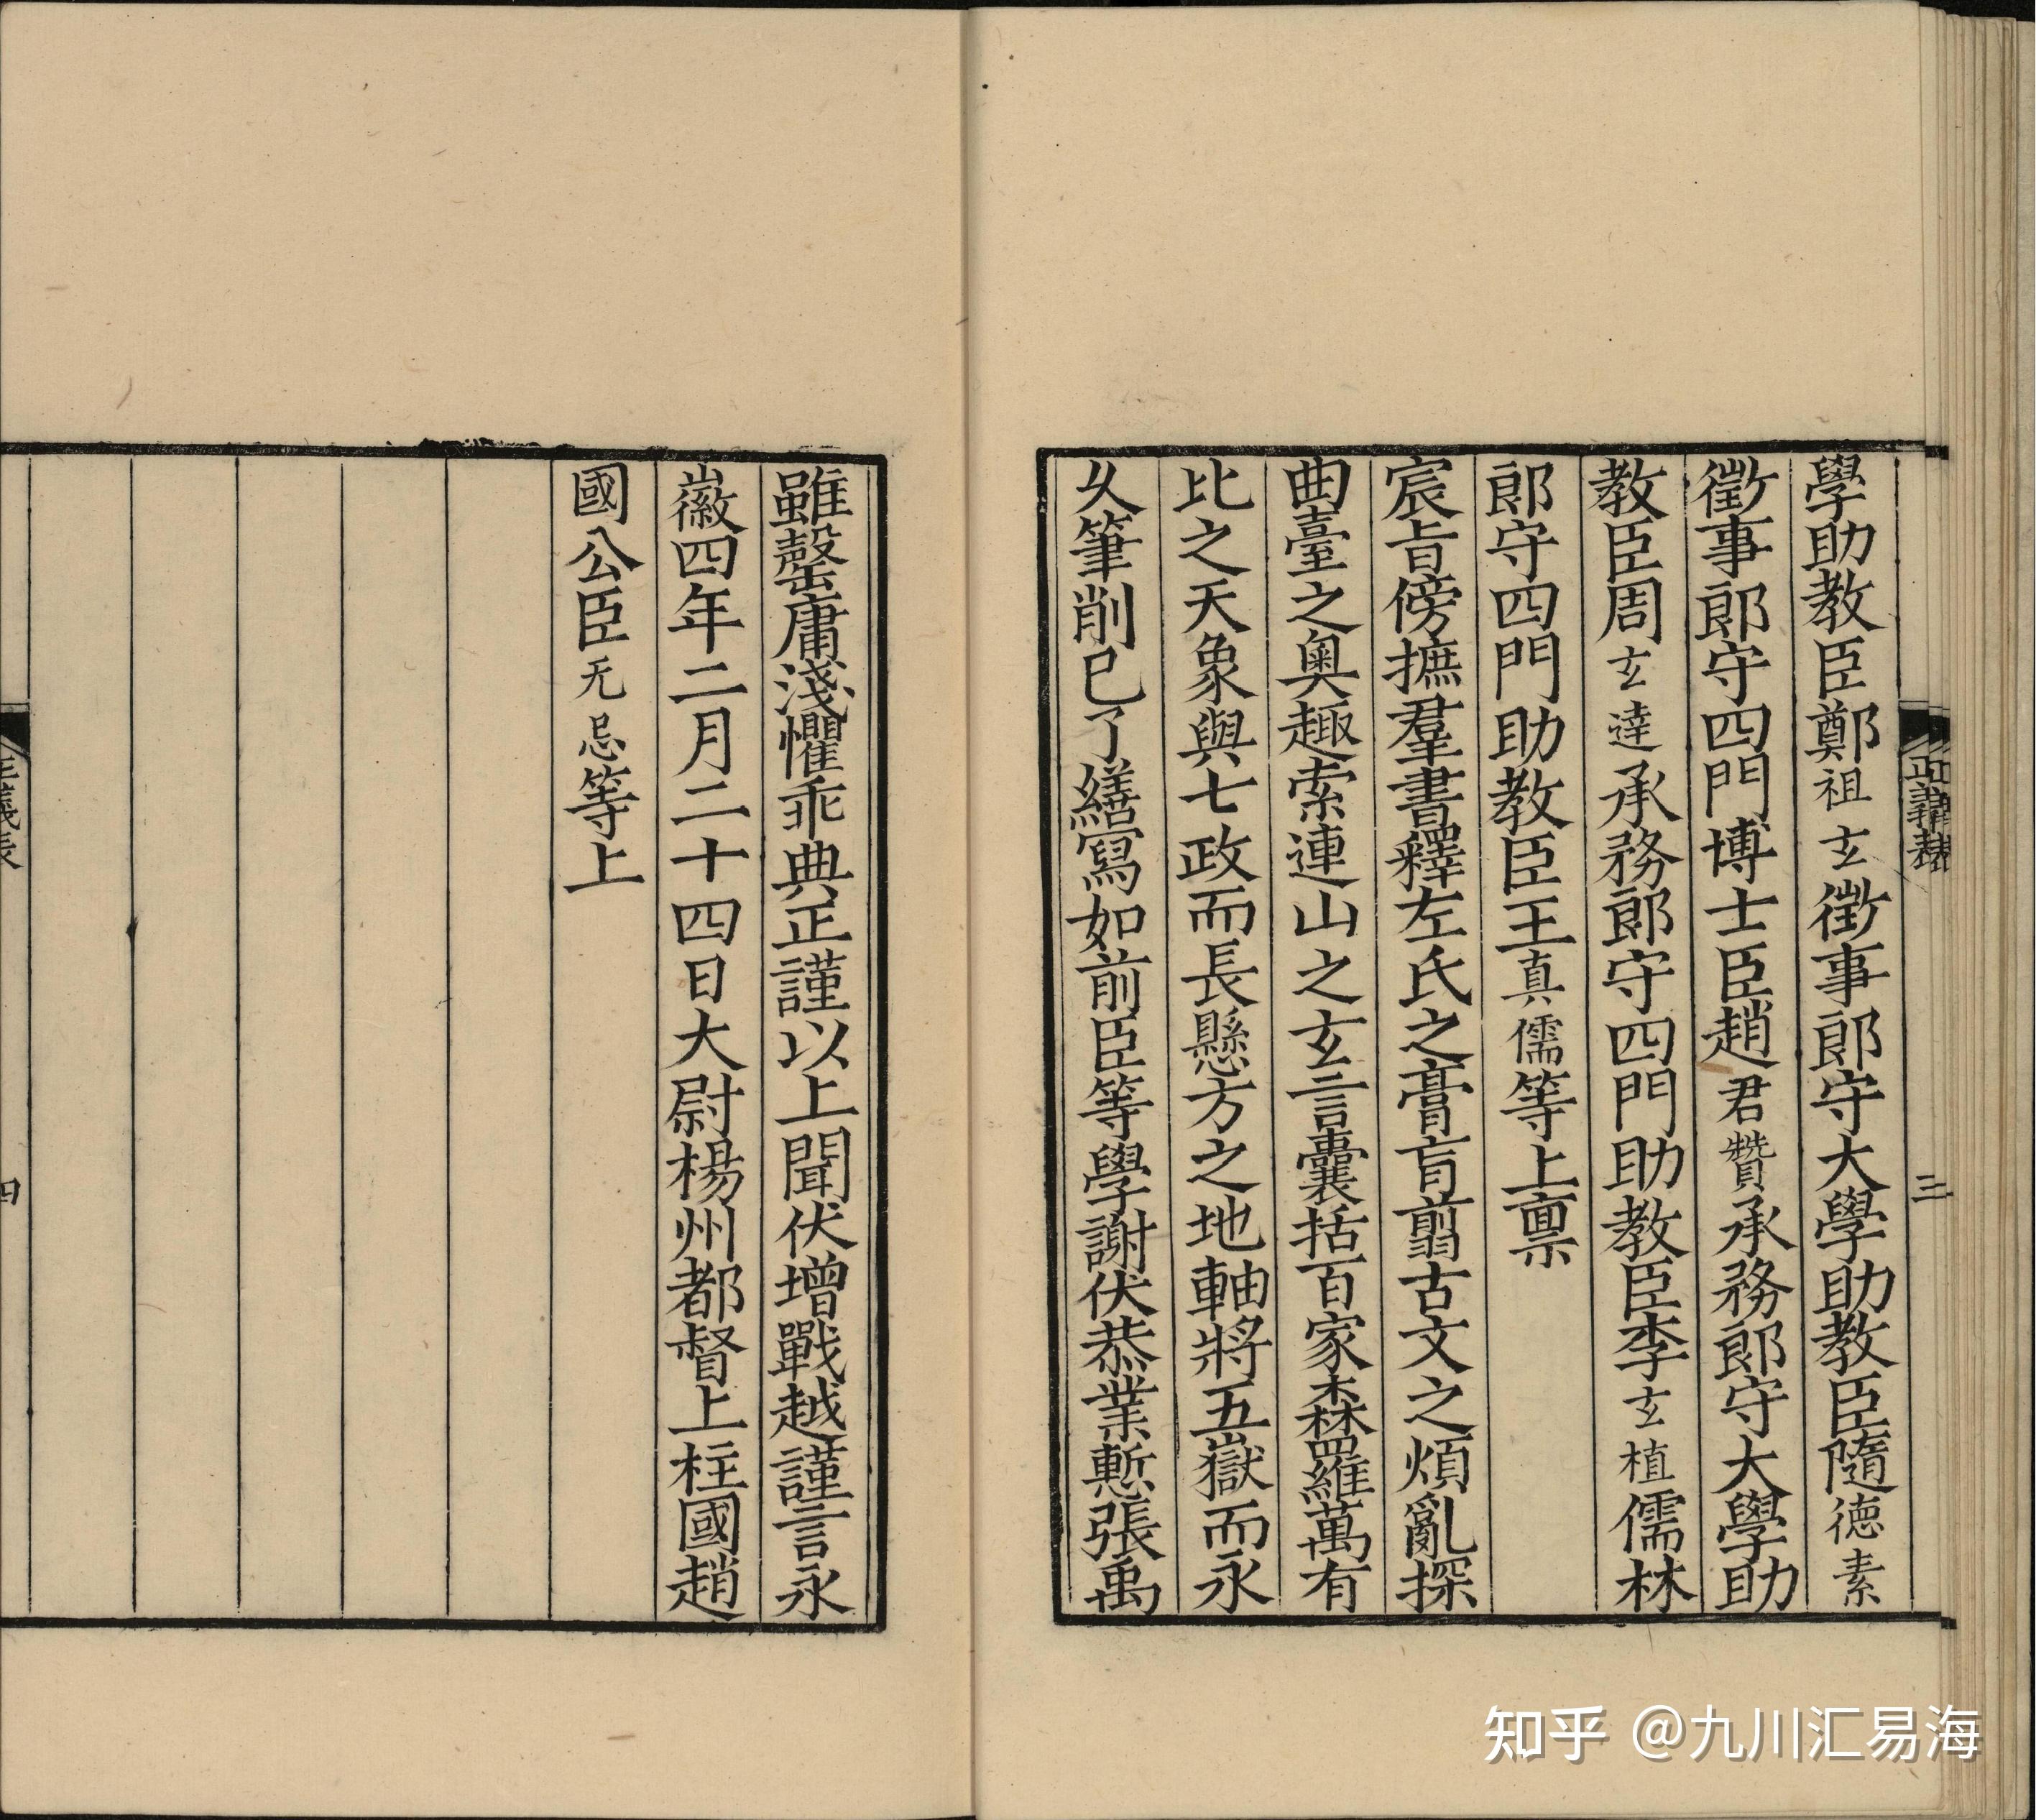 學助教臣鄭祖玄徵事郎守大學助教臣隨德素
徵事郎守四門博士臣趙君贊承務郎守大學助
教臣周玄達承務郎守四門助教臣李玄植儒林
郎守四門助教臣王真儒等上稟
宸旨傍摭羣書釋左氏之膏肓翦古文之煩亂探
曲臺之奥趣索連山之玄言囊括百家森羅萬有
比之天象與七政而長懸方之地軸將五嶽而永
久筆削已了繕寫如前臣等學謝伏恭業慙張禹
雖罄庸淺懼乖典正謹以上聞伏增戰越謹言永
徽四年二月二十四日大尉楊州都督上柱國趙
國公臣无忌等上
三
四
知乎 @九川汇易海